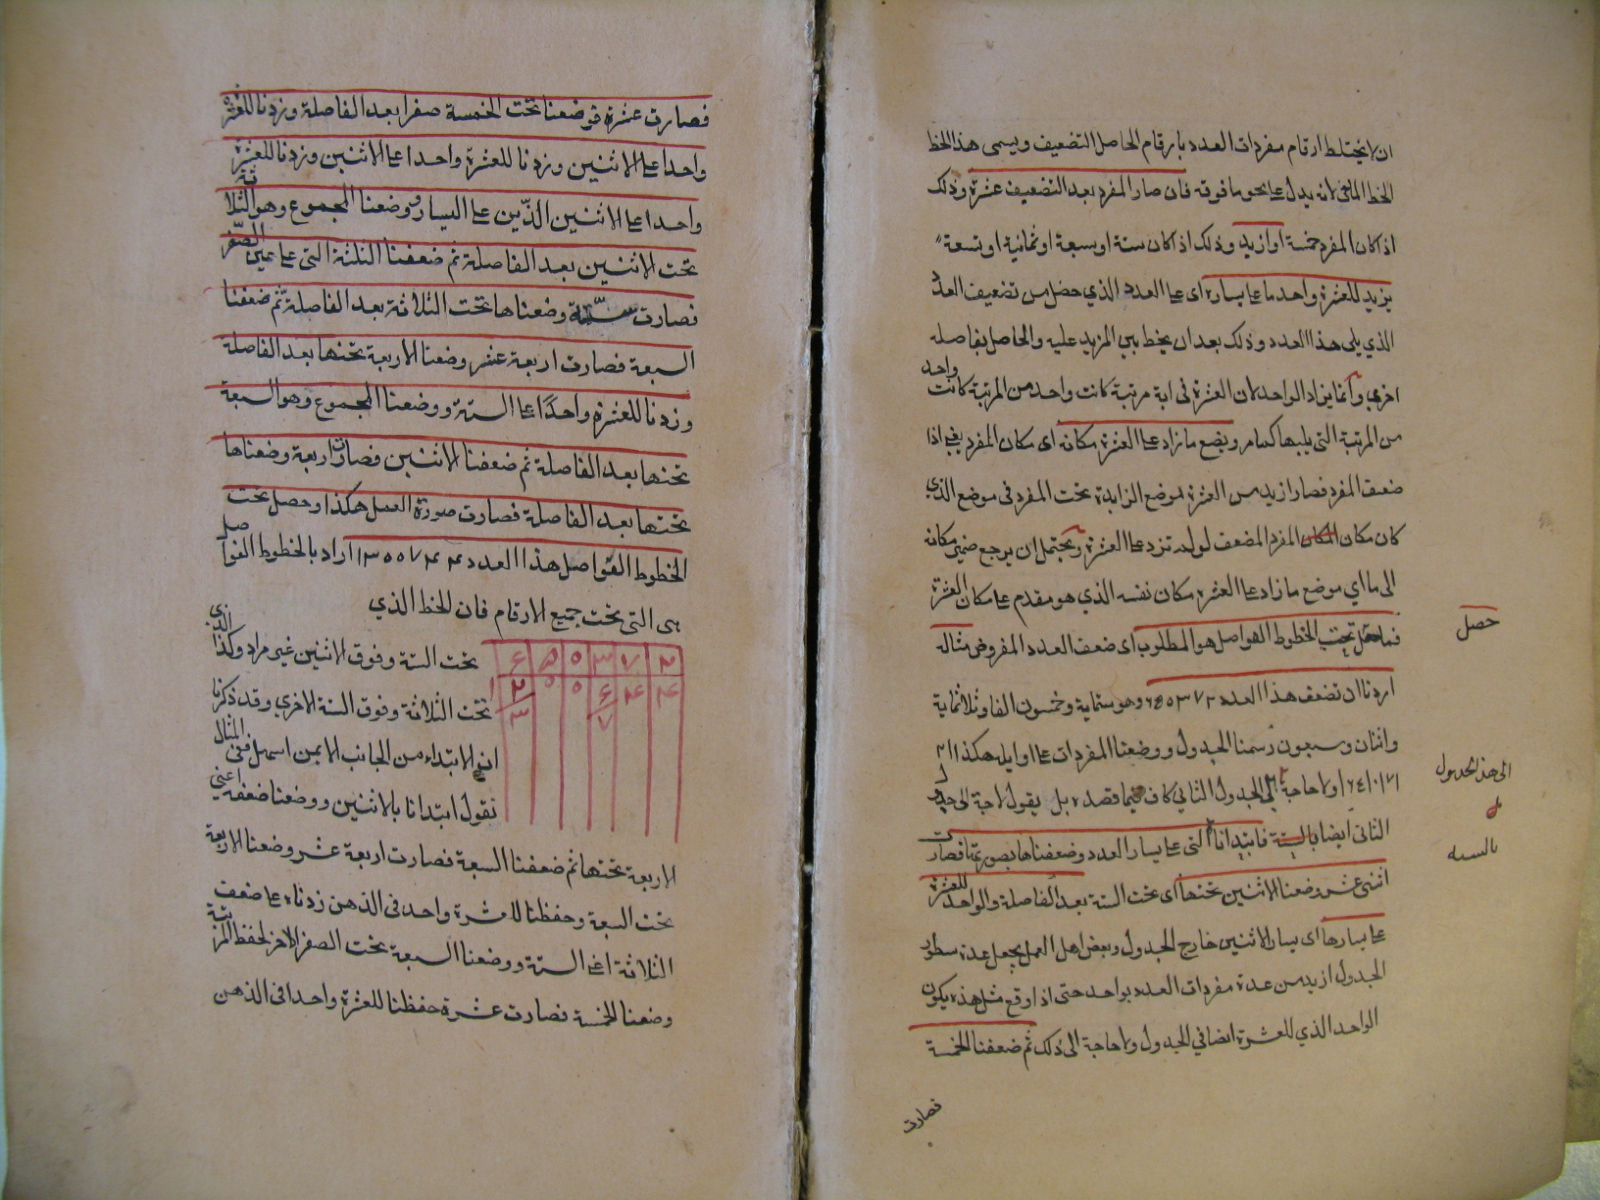 ان لا يختلط ارقام مفردات العدد بارقام الحاصل التضعيف ويسمى هذا الخط
الخط الماحى لانه يدل على محو ما فوقه فان صار المفرد بعد التضعيف عشرة وذلك
اذ كان المفرد خمسة او ازيد وذلك اذ كان ستة او سبعة او ثمانية او تسعة
يزيد للعشرة واحد ما على يساره اى على العدد الذي حصل من تضعيف العدد
الذي يلى هذا العدد وذلك بعد ان يخط بين المزيد عليه والحاصل بفاصلة
اخرى وانما يزاد الواحد لان العشرة فى اية مرتبة كانت واحد من المرتبة كانت واحد
من المرتبة التى يليها كما مر ويضع ما زاد على العشرة مكانه اى مكان المفرد يعنى اذا
ضعف المفرد فصار ازيد من العشرة موضع الزايدة تحت المفرد فى موضع الذي
كان مكان المكان المفرد المضعف لو لم تزد على العشرة ويحتمل ان يرجع ضمير مكانه
الى ما اي موضع ما زاد على العشرة مكان نفسه الذي هو مقدم على مكان العشرة
فما حصل تحت الخطوط الفواصل هو المطلوب اى ضعف العدد المفروض مثاله
حصل
اردنا ان نضعف هذا العدد ٦٥٠٣٧٢ وهو ستماية وخمسون الفا وثلاثماية
واثنان وسبعون رسمنا الجدول ووضعنا المفردات على اوايله هكذا
اولا حاجة الى الجدول الثاني كاف فيما قصده بل يقول لا حاجة الى جدول
الى هذ الجدول
الثانى ايضا بالستة فابتدانا التى على يسار العدد وضعفناها بصورتها فصارت
بالسته
اثنى عشر وضعنا الاثنين تحتها اى تحت الستة بعد الفاصلة والواحد للعشرة
على يسارها اى يسار الاثنين خارج الجدول وبعض اهل العمل يجعل عدة سطور
الجدول ازيد من عدة مفردات العدد بواحد حتى اذا وقع مثل هذه يكون
الواحد الذي للعشرة ايضا في الجدول ولا حاجة الى ذلك ثم ضعفنا الخمسة
فصارت
فصارت عشرة فوضعنا تحت الخمسة صفرا بعد الفاصلة وزدنا للعشرة
واحدا على الاثنين وزدنا للعشرة واحدا على الاثنين وزدنا للعشرة
واحدا على الاثنين الذين على اليسار ووضعنا المجموع وهو الثلاثة
تحت الاثنين بعد الفاصلة ثم ضعفنا الثلثة التى على يمين الصفر
فصارت ستة وضعناها تحت الثلاثة بعد الفاصلة ثم ضعفنا
السبعة فصارت اربعة عشر وضعنا الاربعة تحتها بعد الفاصلة
وزدنا للعشرة واحدًا على الستة ووضعنا المجموع وهو السبعة
تحتها بعد الفاصلة ثم ضعفنا الاثنين فصارت اربعة وضعناها
تحتها بعد الفاصلة فصارت صورة العمل هكذا وحصل تحت
الخطوط الفواصل هذا العدد ١٣٠٠٧٤٤ اراد بالخطوط الفواصل
هى التى تحت جميع الارقام فان الخط الذي
تحت الستة وفوق الاثنين غير مراد وكذا الذي
٦ ٥ ٠ ٣ ٧ ٢
تحت الثلاثة وفوق الستة الاخرى وقد ذكرنا
١ ٢ ٠ ٠ ٦ ٤ ٤
٣ ٧
ان الابتداء من الجانب الايمن اسهل ففى المثال
نقول ابتدانا بالاثنين ووضعنا ضعفه اعنى
الاربعة تحتها ثم ضعفنا السبعة فصارت اربعة عشر وضعنا الاربعة
تحت السبعة وحفظنا للعشرة واحد فى الذهن زدناه على ضعف
الثلاثة اعنى الستة ووضعنا السبعة تحت الصفر الاخر لحفظ المرتبة
وضعنا الخمسة فصارت عشرة حفظنا للعشرة واحدا فى الذهن